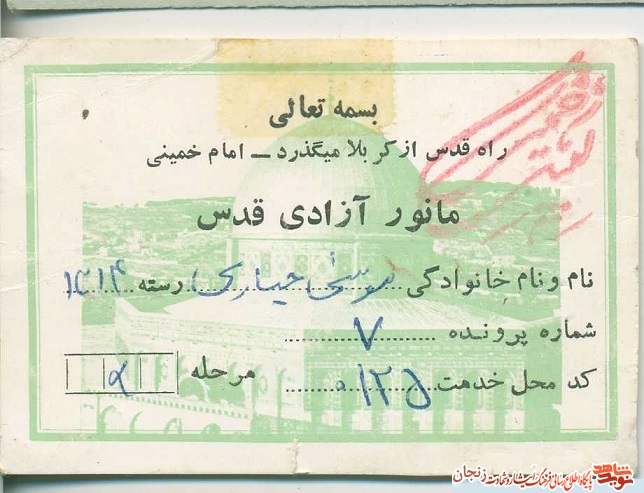 بسمه تعالی
راه قدس از کربلا میگذرد ــ امام خمینی
مانور آزادی قدس
نام و نام خانوادگی موسی رسته ۱۲۱۴
شماره پرونده ۷
کد محل خدمت ۰۱۲۵ مرحله
نوید شاهد پایگاه اطلاع رسانی فرهنگ ایثار و شهادت زنجان